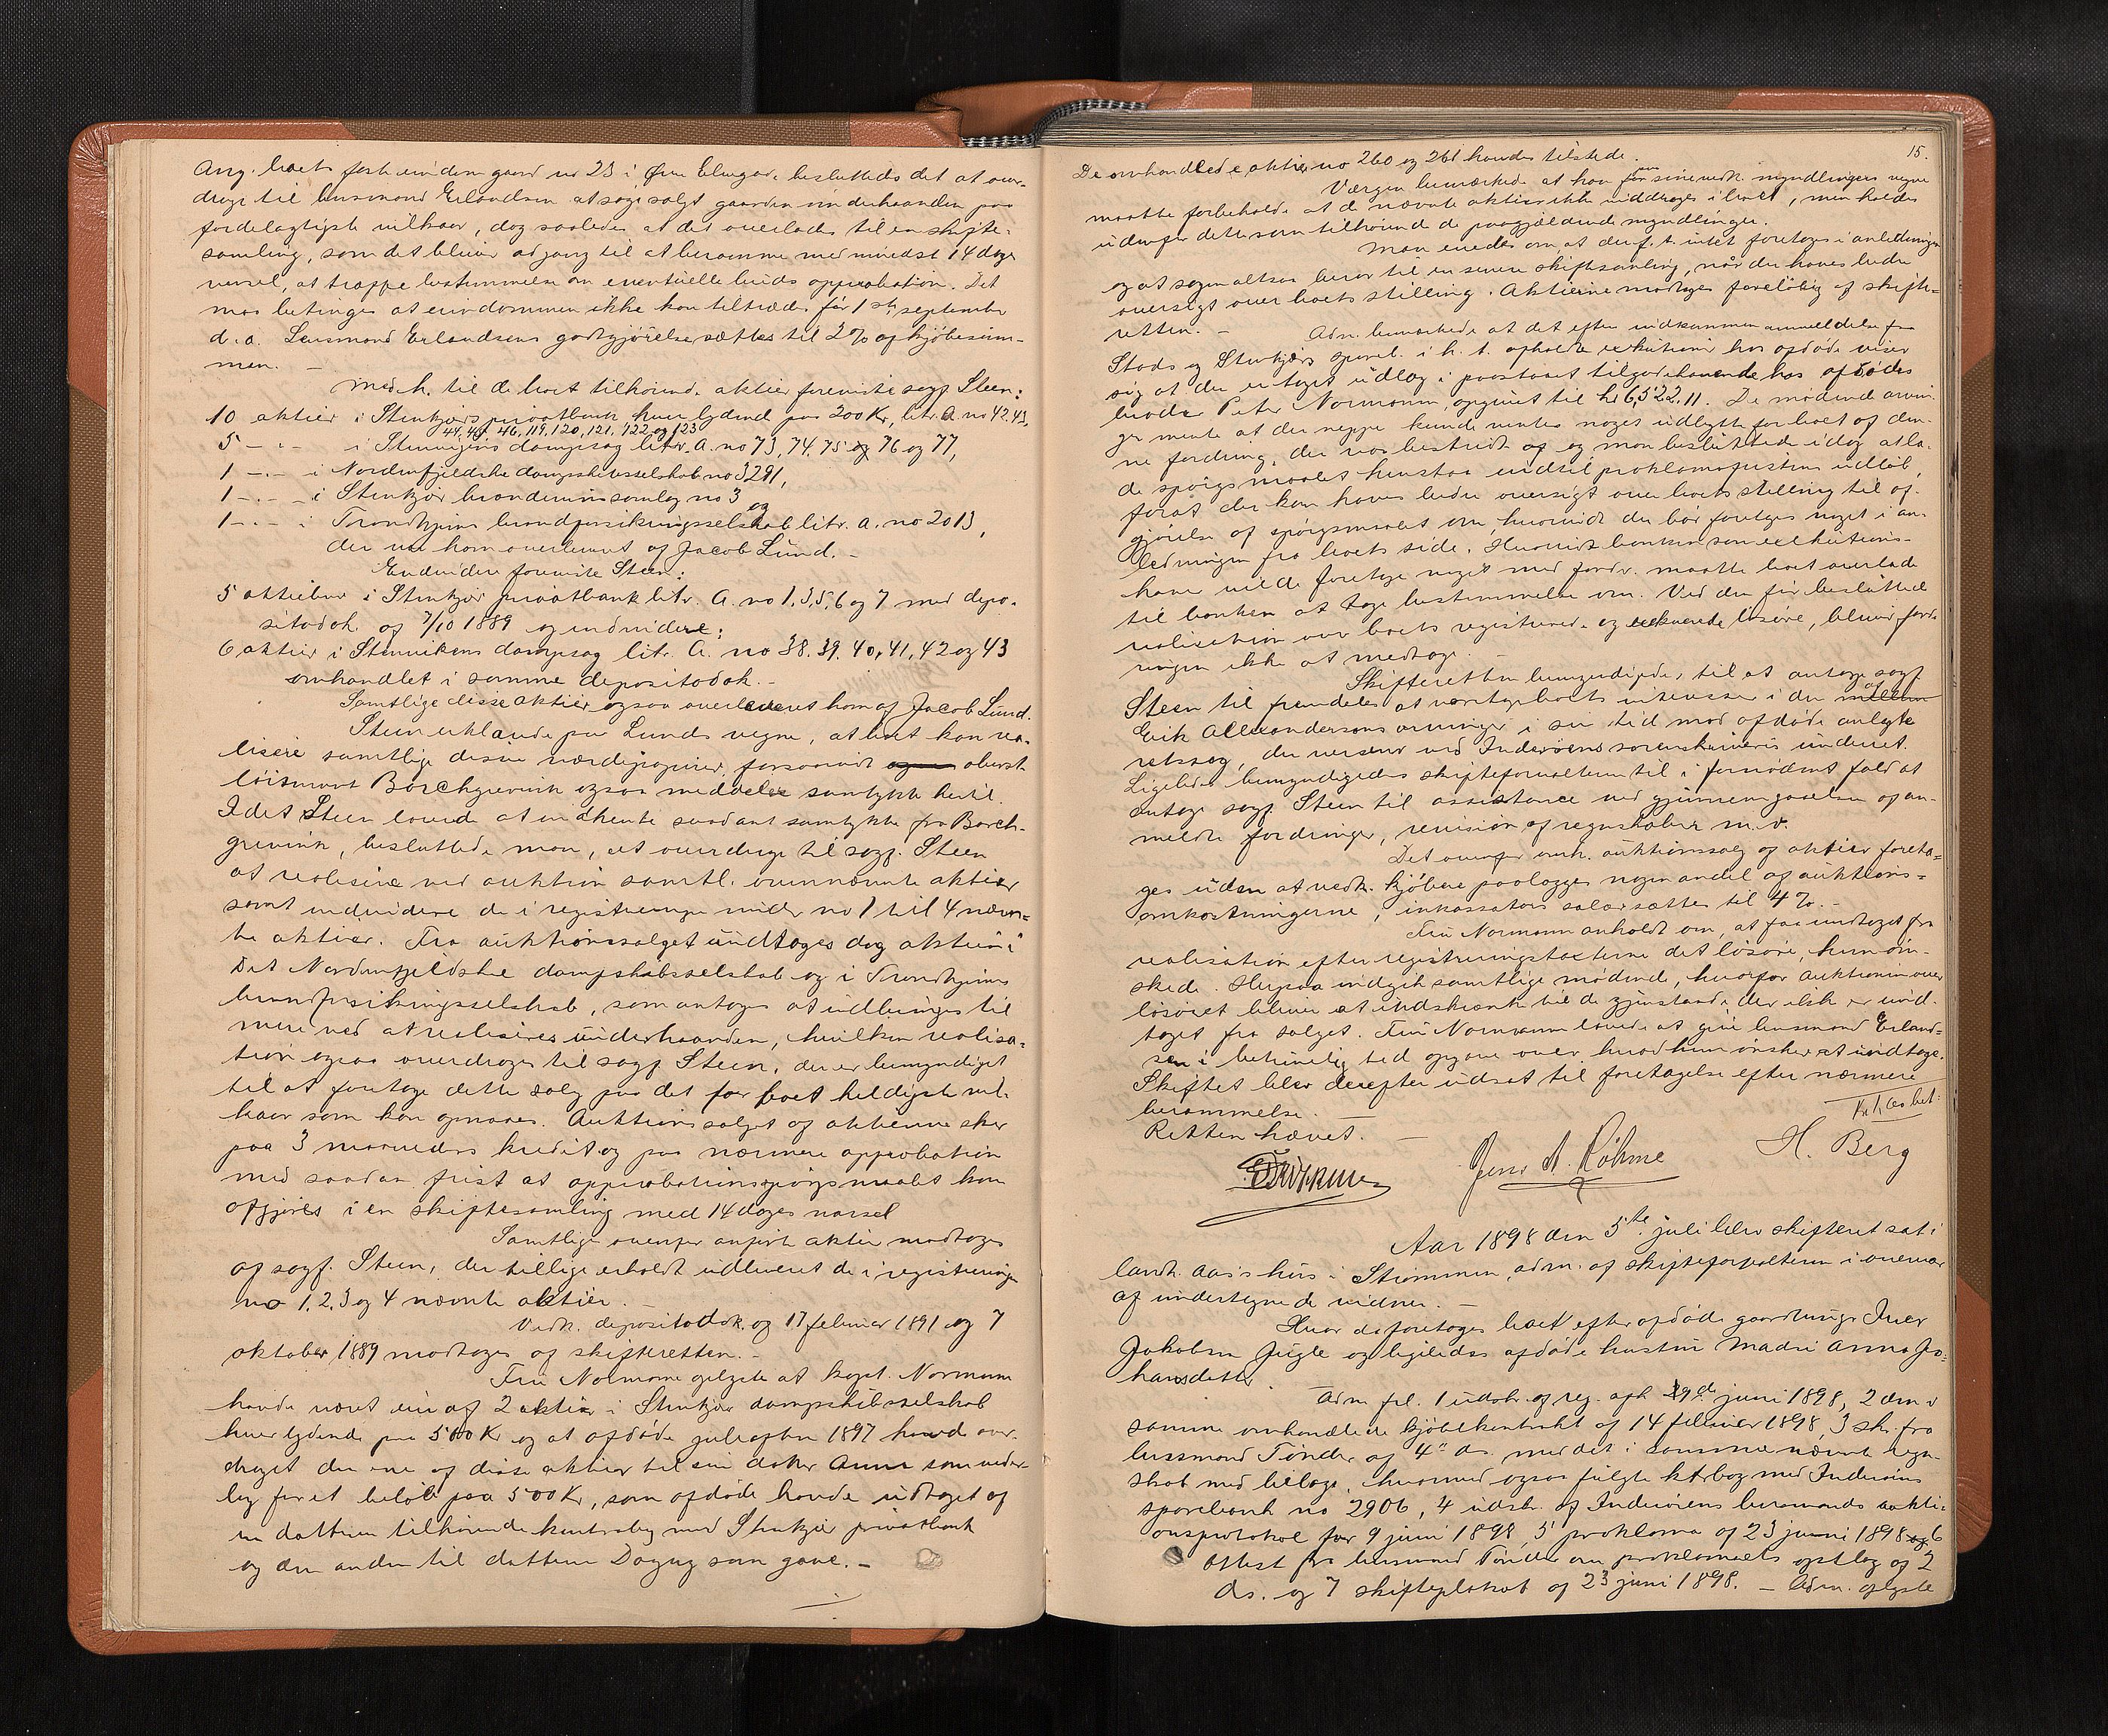 Ang. boets faste eiendom gaard no 23 i Øvre Elvegade besluttedes det at over-
drage til lensmand Erlandsen at søge solgt gaarden underhaanden paa
fordelagtigste vilkaar, dog saaledes at det overlades til en skifte-
samling, som det bliver adgang til at beramme med mindst 14 dages
varsel, at træffe bestemmelse om eventuelle buds approbation. Det
maa betinges at eiendommen ikke kan tiltrædes før 1ste september
d. a. Lensmand Erlandsens godtgjørelse sættes til 2% af kjøbesum-
men. –
Med h. til de boet tilhørende aktier foreviste sagf. Steen:
10 aktier i Stenkjærs privatbank hver lydende paa 200 Kr, litr. A. no 42, 43,
44, 45, 46, 119, 120, 121, 122 og 123
5 – " – i dampsag litr. A. no 73, 74, 75 og 76 og 77,
1 – " – i Nordenfjeldske dampskibsselskab no 3291,
1 – " – i Stenkjær brændevinssamlag no 3 og
1 – " – i Trondhjems brandforsikringsselskab litr. A. no 2013,
der var ham overleveret af Jacob Lund. –
Endvidere foreviste Steen:
5 aktiebrev i Stenkjær privatbank litr. A. no 1, 3, 5, 6 og 7 med depo-
sitodok. af 7/10 1889 og endvidere:
6 aktier i dampsag litr. A. no 38, 39, 40, 41, 42 og 43
omhandlet i samme depositodok. –
Samtlige disse aktier ogsaa overleveret ham af Jacob Lund.
Steen erklærede paa Lunds vegne, at boet kan rea-
lisere samtlige disse værdipapirer, forsaavidt oberst-
løitnant Borchgrevink ogsaa meddeler samtykke hertil.
Idet Steen lovede at indhente saadant samtykke fra Borch-
grevink, besluttede man, at overdrage til sagf. Steen
at realisere ved auktion samtl. ovennævnte aktier
samt endvidere de i registreringen under no 1 til 4 nævn-
te aktier. Fra auktionssalget undtages dog aktierne i
Det Nordenfjeldske dampskibsselskab og i Trondhjems
brandforsikringsselskab, som antages at udbringes til
mere ved at realiseres underhaanden, hvilken realisa-
tion ogsaa overdrages til sagf. Steen, der er bemyndiget
til at foretage dette salg paa det for boet heldigste vil-
kaar som kan opnaaes. Auktionssalget af aktierne sker
paa 3 maaneders kredit og paa nærmere approbation
med saadan frist at approbationsspørgsmaalet kan
afgjøres i en skiftesamling med 14 dages varsel
Samtlige ovenfor anførte aktier modtoges
af sagf. Steen, der tillige erholdt udleveret de i registreringen
no 1, 2, 3 og 4 nævnte aktier. –
Vedk. depositodok. af 17 februar 1891 og 7
oktober 1889 modtoges af skifteretten. –
Fru Normann oplyste at kapt. Normann
havde været eier af 2 aktier i Stenkjær dampskibsselskab
hver lydende paa 500 Kr og at afdøde juleaften 1897 havde over-
draget den ene af disse aktier til sin datter Anna som veder-
lag for et beløb paa 500 Kr, som afdøde havde udtaget af
en datteren tilhørende kontrabog med Stenkjær privatbank
og den anden til datteren Dagny som gave. –
15.
De omhandlede aktier no 260 og 261 havdes tilstede.
Værgen bemærkede at han paa sine vedk. myndlingers vegne
maatte forbeholde at de nævnte aktier ikke inddrages i boet, men holdes
udenfor dette som tilhørende de paagjældende myndlinger.
Man enedes om at der f. t. intet foretages i anledningen
og at sagen altsaa beror til en senere skiftesamling, når der haves bedre
oversigt over boets stilling. Aktierne modtages foreløbig af skifte-
retten. –
Adm. bemærkede at det efter indkommen anmeldelse fra
Stods og Stenkjærs spareb. i h. t. afholdt exekution hos afdøde viser
sig at der er taget udlæg i paastaaet tilgodehavende hos afdødes
broder Peter Normann, opgivet til kr 6,522.11. De mødende arvin-
ger mente at der neppe kunde ventes noget udbytte for boet af den-
ne fordring, der var bestridt af og man besluttede idag at la-
de spørgsmaalet henstaa indtil proklamafristens udløb,
forat der kan haves bedre oversigt over boets stilling til af-
gjørelse af spørgsmaalet om, hvorvidt der bør foretages noget i an-
ledningen fra boets side. Hvorvidt banken som exekutions-
haver vilde foretage noget med fordr. maatte boet overlade
til banken at tage bestemmelse om. Ved den før besluttede
realisation over boets registrerede og løsøre, bliver ford-
ringen ikke at medtage. –
Skifteretten bemyndigedes til at antage sagf.
Steen til fremdeles at varetage boets interesser i den af
Erik Allexandersens arvinger i sin tid mod afdøde anlagte
retssag, der verserer ved Inderøens sorenskriveris underret.
Ligeledes bemyndigedes skifteforvalteren til i fornødent fald at
antage sagf. Steen til assistance ved gjennemgaaelsen af an-
meldte fordringer, revision af regnskaber m. v.
Det ovenfor omh. auktionssalg af aktier foreta-
ges uden at vedk. kjøbere paalægges nogen andel af auktions-
omkostningerne, inkassators salær sættes til 4%. –
Fru Normann anholdt om, at faa undtaget fra
realisation efter registreringstaxterne det løsøre, hun øn-
skede. Herpaa indgik samtlige mødende, hvorfor auktionen over
løsøret bliver at indskrænke til de gjenstande der ikke er und-
taget fra salget. Fru Normann lovede at give lensmand Erland-
sen i betimelig tid opgave over, hvad hun ønsker at undtage.
Skiftet blev derefter udsat til foretagelse efter nærmere
berammelse. –
Retten hævet. –
Jens A. Röhme
H. Berg
Aar 1898 den 5te juli blev skifteret sat i
landh. Aas's hus i Strømmen, adm. af skifteforvalteren i overvær
af undertegnede vidner. –
Hvor da foretoges boet efter afdøde gaardbruger Iver
Jakobsen og ligeledes afdøde hustru Madri Anna Jo-
hansdatter.
Adm. frl. 1 udskr. af reg. afh. 29de juni 1898, 2 den i
samme omhandlede kjøbekontrakt af 14 februar 1898, 3 sk. fra
lensmand Tønder af 4de ds. med det i samme nævnte regn-
skab med bilage, hvormed ogsaa fulgte ktrbog med Inderøens
sparebank no 2906, 4 udskr. af Inderøens lensmands aukti-
onsprotokol for 9 juni 1898, 5 proklama af 23 juni 1898 og 6
Attest fra lensmand Tønder om proklamaets opslag af 2
ds. og 7 skifteplakat af 23 juni 1898. – Adm. oplyste